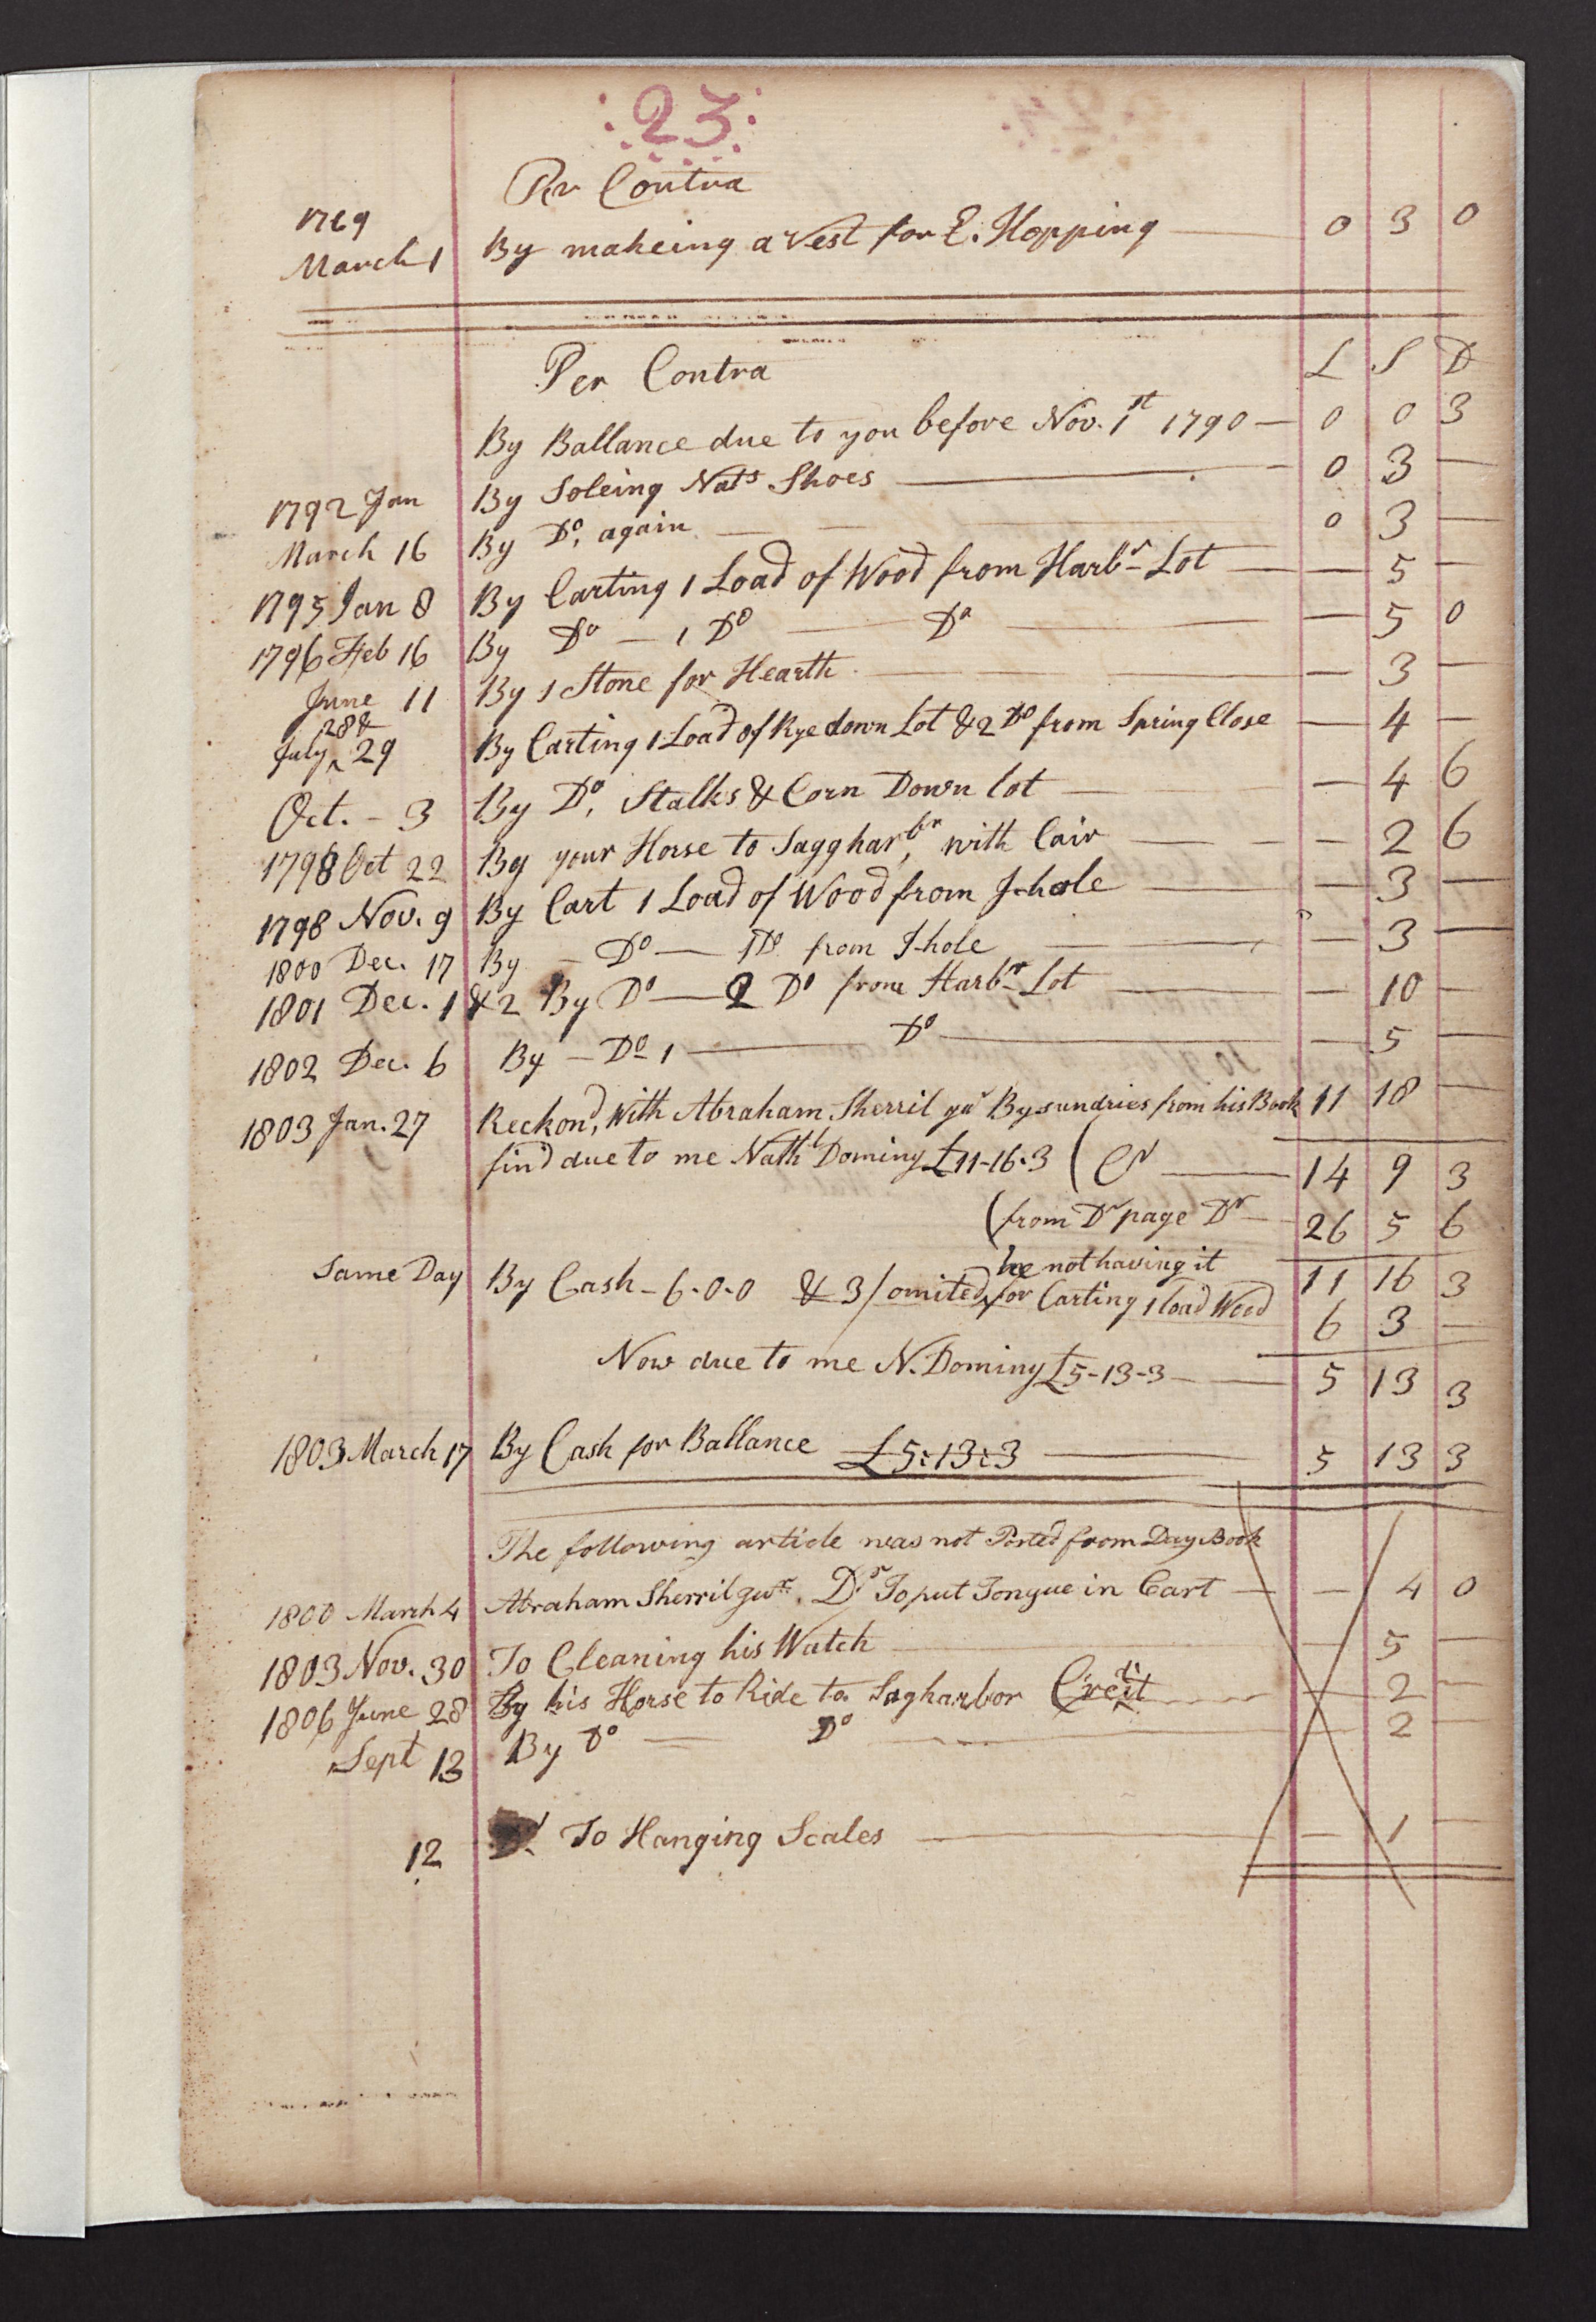 :23:
Per Contra
1769
March 1 By makeing a Vest for E. Hopping 0 3 0
Per Contra L S D
By Ballance due to you before Nov. 1st 1790 — 0 0 3
1792 Jan By Soleing Nats Shoes — 0 3 —
March 16 By Do, again — 0 3 —
1795 Jan 8 By Carting 1 Load of Wood from Harbr Lot — — 5 —
1796 Feb 16 By Do — 1 Do — Do — — 5 0
June 11 By 1 Stone for Hearth — — 3 —
July 28 & 29 By Carting 1 Load of Rye down Lot & 2 Do from Spring Close — 4 —
Oct. - 3 By Do, Stalks & Corn Down lot — — 4 6
1798 Oct 22 By your Horse to Saggharbr, with Cair — — 2 6
1798 Nov. 9 By Cart 1 Load of Wood from J-hole — — 3 —
1800 Dec. 17 By — Do — 1 Do from J-hole — — 3 —
1801 Dec. 1 & 2 By Do — 2 Do from Harbr Lot — — 10 —
1802 Dec. 6 By — Do 1 — Do — — 5 —
1803 Jan. 27 Reckon'd, With Abraham Sherril By sundries from his Book 11 18 —
find due to me Nathl Dominy £11-16-3 ( Cr — 14 9 3
(from Dr page Dr — 26 5 6
he not having it
Same Day By Cash - 6-0-0 & 3/ omited for Carting 1 load Wood 11 16 3
6 3 —
Now due to me N. Dominy £5-13-3 — 5 13 3
1803 March 17 By Cash for Ballance £5:13:3 — 5 13 3
The following article was not Posted from Day Book
1800 March 4 Abraham Sherril Dr To put Tongue in Cart — — 4 0
1803 Nov. 30 To Cleaning his Watch — — 5 —
1806 June 28 By his Horse to Ride to Sagharbor Credit — 2 —
Sept 13 By Do — Do — — 2 —
12 To Hanging Scales — — 1 —